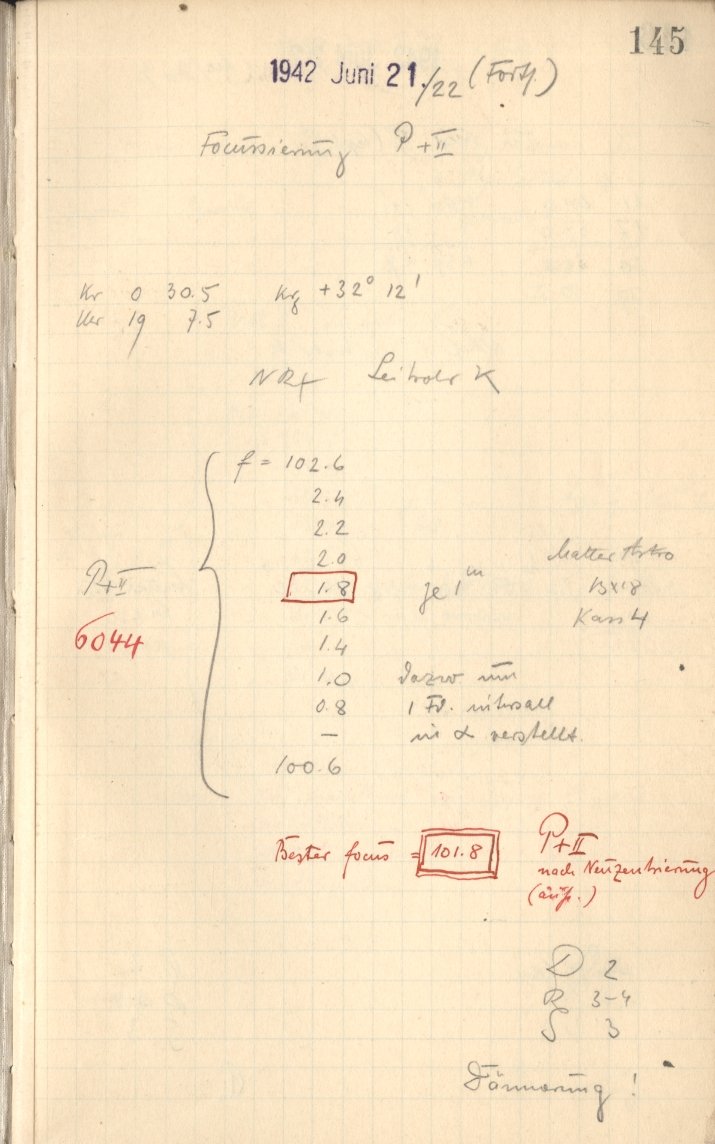 145
1942 Juni 21./22 (Forts.)
Focussierung P+II
Kr 0 30.5 Kg +32° 12'
Uhr 19 7.5
Leitrohr K
f = 102.6
2.4
2.2
2.0
1.8
1.6
1.4
1.0
0.8
—
100.6
P+II
6044
je 1ᵐ
Matter Astro
13x18
Kass 4
dazw um
1 Fd. intervall
in α verstellt.
Bester focus = 101.8
P+II
nach Neuzentrierung
D 2
R 3-4
S 3
Dämmerung!